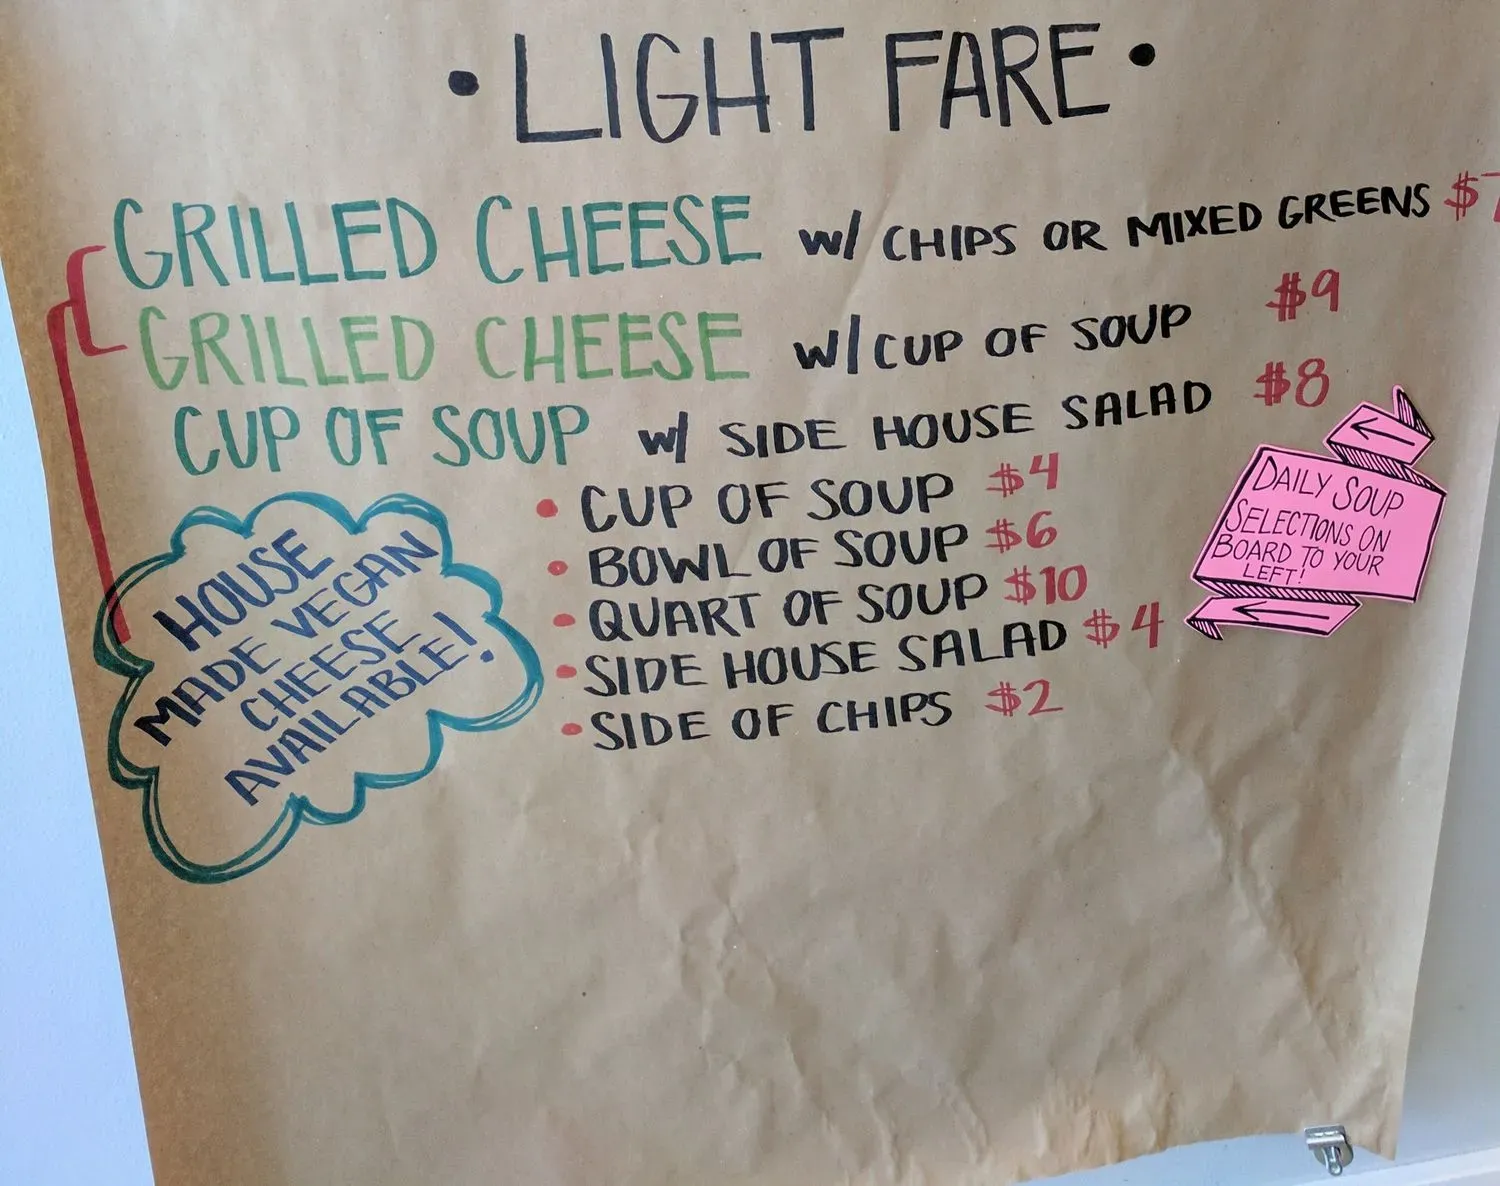 • LIGHT FARE •
GRILLED CHEESE w/ CHIPS OR MIXED GREENS $7
GRILLED CHEESE w/ CUP OF SOUP $9
CUP OF SOUP w/ SIDE HOUSE SALAD $8
• CUP OF SOUP $4
• BOWL OF SOUP $6
• QUART OF SOUP $10
• SIDE HOUSE SALAD $4
• SIDE OF CHIPS $2
HOUSE
MADE VEGAN
CHEESE
AVAILABLE!
DAILY SOUP
SELECTIONS ON
BOARD TO YOUR
LEFT!